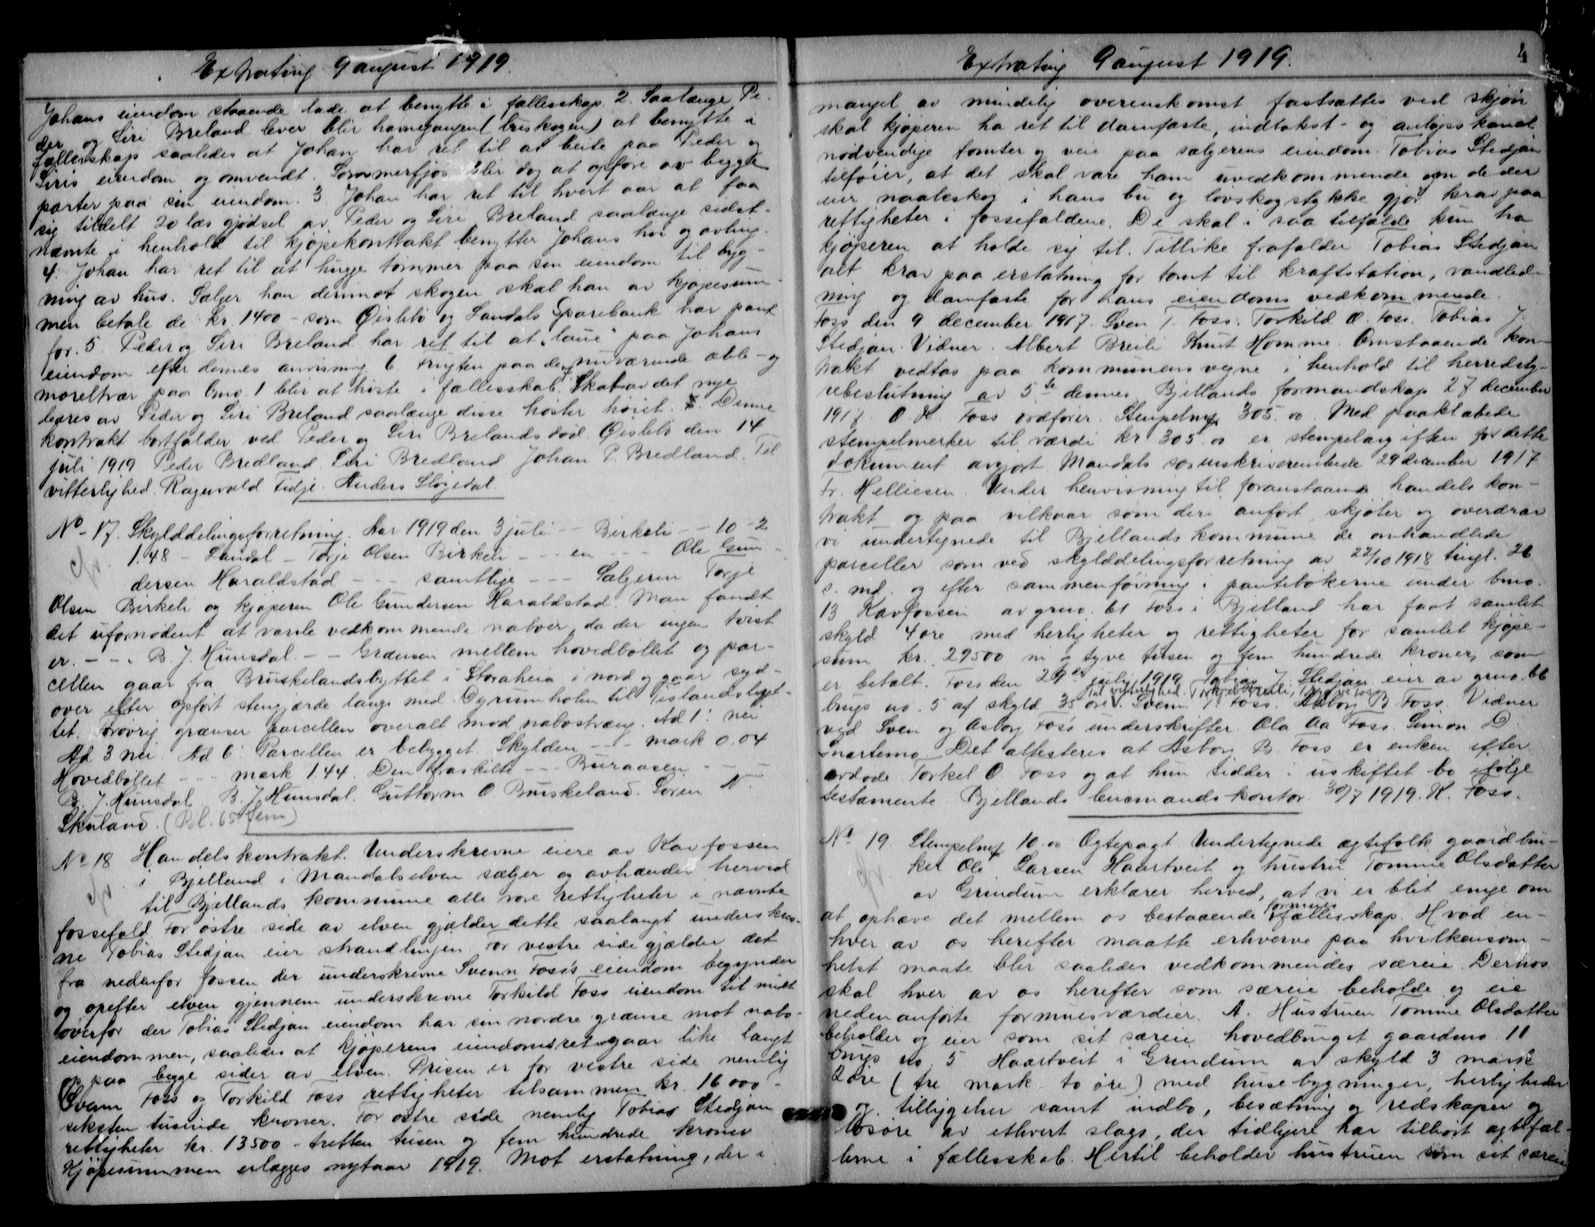 Extrating 9 august 1919.
Johans eiendom staaende lade at benytte i fællesskap. 2. Saalænge Pe-
der og Siri Breland lever blir havnegangen (buskogen) at benytte i
fællesskap saaledes at Johan har ret til at beite paa Peder og
Siris eiendom og omvendt. Sommerfjøs blir dog at opføre av begge
parter paa sin eiendom. 3 Johan har ret til hvert aar at faa
sig tildelt 20 læs gjødsel av Peder og Siri Breland saalænge sidst-
nævnte i henhold til kjøpekontrakt benytter Johans hus og avling.
4. Johan har ret til at hugge tømmer paa sin eiendom til byg-
ning av hus. Sælger han derimot skogen skal han av kjøpesum-
men betale de kr. 1400 - som Øislebø og Laudals Sparebank har pant
for. 5. Peder og Siri Breland har ret til at "laue" paa Johans
eiendom efter dennes anvisning 6 Frugten paa de nuværende æble- og
morelltrær paa bno. 1 blir at høste i fællesskab. Skat av det nye
bæres av Peder og Siri Breland saalænge disse høster høiet. Denne
kontrakt bortfalder ved Peder og Siri Brelands død. Øislebø den 14
juli 1919 Peder Bredland Siri Bredland Johan P. Bredland. Til
vitterlighed. Ragnvald Tidje. Anders Slogedal
No 17. Skylddelingsforretning. Aar 1919 den 3 juli - - Birkeli - - 10 - 2
1.48 - Laudal - Torje Olsen Birkeli - - en - - - Ole Gun-
dersen Haraldstad - - - samtlige - - - Sælgeren Torje
Olsen Birkeli og kjøperen Ole Gundersen Haraldstad. Man fandt
det ufornødent at varsle vedkommende naboer, da der ingen tvist
er. - - - B. J. Hunsdal. - - Grænsen mellem hovedbøllet og par-
cellen gaar fra Bruskelandsbyttet i Storaheia i nord og gaar syd-
over efter opført stengjærde langs med Dyrumholm til Tislandsbyt-
tet. Forøvrig grænser parcellen overalt mod nabostræng. Ad 1: nei
Ad 3 nei. Ad 6: Parcellen er bebygget. Skylden - - - mark 0.04
Hovedbøllet - - - mark 1.44. Den fraskilte - - Bueraasen - - -
B. J. Hunsdal B. J. Hunsdal. Guttorm O Bruskeland. Søren N
Skuland. (Bl. 65 fem)
No 18 Handelskontrakt. Underskrevne eiere av Kavfossen
i Bjelland i Mandalselven sælger og avhænder herved
til Bjellands kommune alle vore rettigheter i nævnte
fossefald. For østre side av elven gjælder dette saalangt underskrev-
ne Tobias Stedjan eier strandlinjen. For vestre side gjælder det
fra nedenfor fossen der underskrevne Svenn Foss's eiendom begynder
og opefter elven gjennem underskrevne Torkild Foss eiendom til midt
overfor der Tobias Stedjan eiendom har sin nordre grænse mot nabo-
eiendommen, saaledes at kjøperens eiendomsret gaar like langt
op paa begge sider av elven. Prisen er for vestre side nemlig
Svenn Foss og Torkild Foss rettigheter tilsammen kr. 16 000 -
seksten tusinde kroner. For østre side nemlig Tobias Stedjan
rettigheter kr. 13500 - tretten tusen og fem hundrede kroner
Kjøpesummen erlægges nytaar 1919. Mot erstatning, der i
Extrating 9 august 1919.
4
mangel av mindelig overenskomst fastsættes ved skjøn
skal kjøperen ha ret til damfæste, indtakst- og avløpskanal
nødvendige tomter og veie paa sælgerens eiendom. Tobias Stedjan
tilføier, at det skal være ham uvedkommende om de der
eier naalеskog i hans bu og løvskogstykke gjør krav paa
rettigheter i fossefaldene. De skal i saa tilfælde kun ha
kjøperen at holde sig til. Tillike frafalder Tobias Stedjan
alt krav paa erstatning for tomt til kraftstation, vandled-
ning og damfæste for hans eiendoms vedkommende.
Foss den 9 december 1917. Sven T. Foss. Torkild O. Foss. Tobias J.
Stedjan. Vidner. Albert Breili Knut Homme. Omstaaende kon-
trakt vedtas paa kommunens vegne i henhold til herredsty-
rebeslutning av 5te dennes Bjellands formandskap 27 december
1917 O K Foss ordfører. Stempelavg 305.00. Med paaklæbede
stempelmerker til værdi kr 305.00 er stempelavgiften for dette
dokument avgjort. Mandals sorenskriverembede 29 december 1917
Fr. Helliesen. Under henvisning til foranstaaende handelskon-
trakt og paa vilkaar som deri anført, skjøter og overdrar
vi undertegnede til Bjellands kommune de omhandlede
parceller som ved skylddelingsforretning av 22/10 1918 tingl. 26
s. md. og efter sammenføining i pantebøkerne under bno.
13 Kavfossen av gno. 61 Foss i Bjelland har faat samlet
skyld 4 øre med herligheter og rettigheter for samlet kjøpe-
sum kr. 29500 ni og tyve tusen og fem hundrede kroner, som
er betalt. Foss den 29de juli 1919 Tobias J. Stedjan eier av gno. 66
bruks no. 5 af skyld 35 øre. Svenn T. Foss. Asborg B Foss. Vidner
ved Sven og Asborg Foss underskrifter Ola Aa Foss. Simon D.
Snartemo. Det attesteres at Asborg B. Foss er enken efter
avdøde Torkel O Foss og at hun sidder i uskiftet bo ifølge
testamente. Bjellands lensmandskontor 30/7 1919. K. Foss.
No 19 Stempelavg 10.00 Egtepagt. Undertegnede ægtefolk gaardbru-
ker Ole Larsen Haartveit og hustru Tomine Olsdatter
av Grindum erklærer herved, at vi er blit enige om
at ophæve det mellem os bestaaende formues fællesskap. Hvad en-
hver av os herefter maatte erhverve paa hvilkensom-
helst maate blir saaledes vedkommendes særeie. Derhos
skal hver av os herefter som særeie beholde og eie
nedenanførte formuesværdier. A. Hustruen Tomine Olsdatter
beholder og eier som sit særeie hovedbruget gaardens 11
brugs no 5 Haartveit i Grindum av skyld 3 mark
2 øre (tre mark to øre) med husebygninger, herligheder
og tilligelser samt indbo, besætning og redskaper og
løsøre av ethvert slags, der tidligere har tilhørt ægtefæl-
lerne i fællesskab. Hertil beholder hustruen som sit særeie